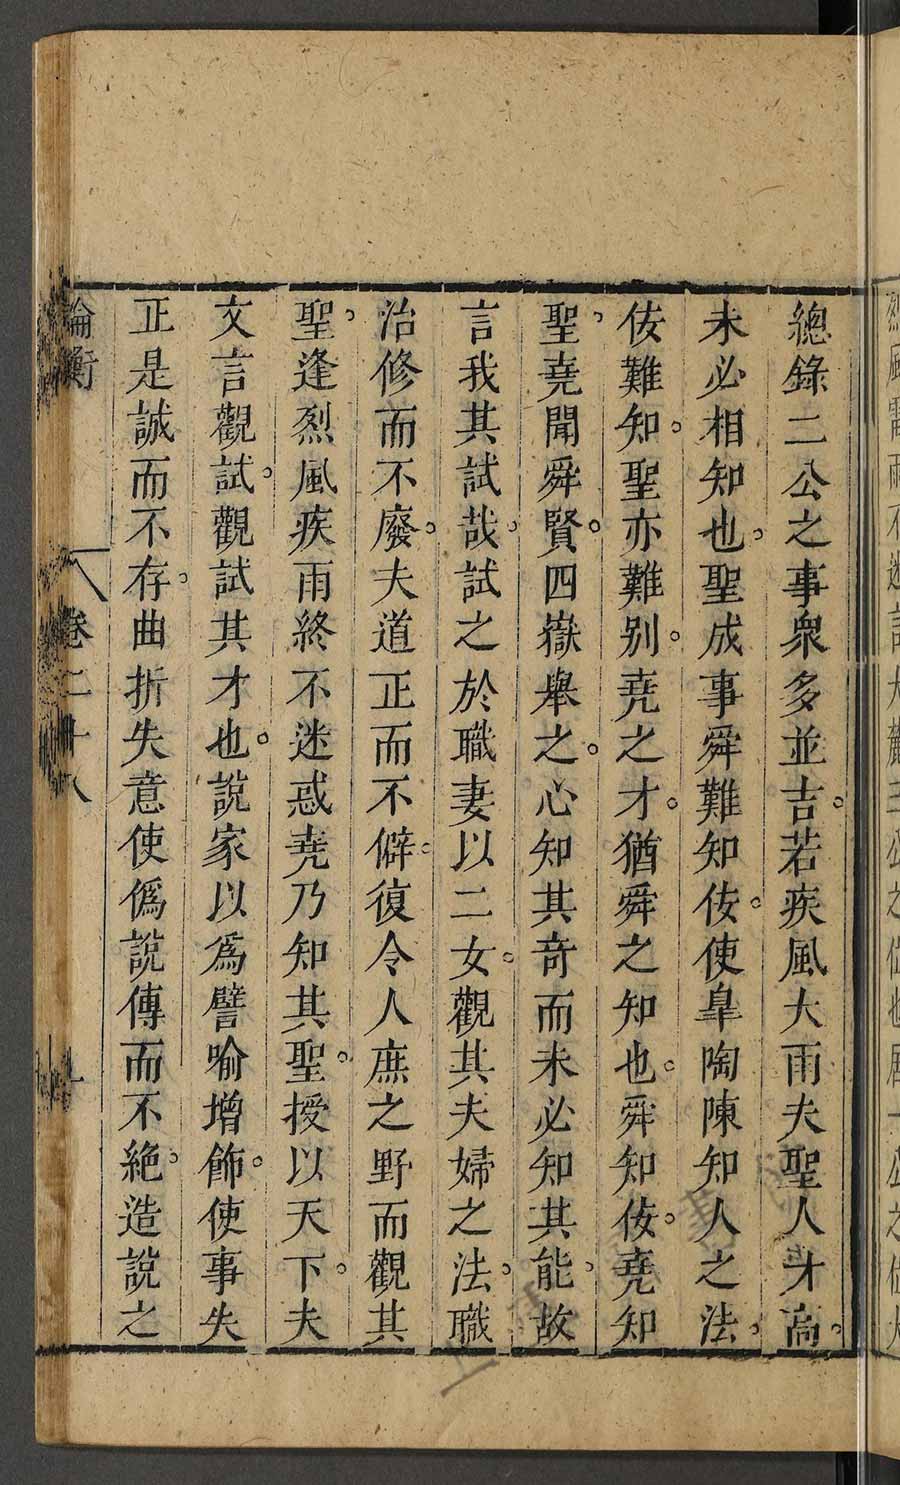 總錄二公之事衆多並吉。若疾風大雨夫聖人才高。
未必相知也。聖成事舜難知佞。使皐陶陳知人之法。
佞難知。聖亦難别。堯之才。猶舜之知也。舜知佞。堯知
聖。堯聞舜賢。四嶽舉之。心知其奇而未必知其能。故
言我其試哉。試之於職妻以二女。觀其夫婦之法。職
治修而不廢。夫道正而不僻。復令人庶之野而觀其
聖。逢烈風疾雨終不迷惑堯乃知其聖。授以天下。夫
文言觀試。觀試其才也。說家以爲譬喻增飾。使事失
正是誠而不存。曲折失意使僞說傳而不絶。造說之
論衡 卷二十八